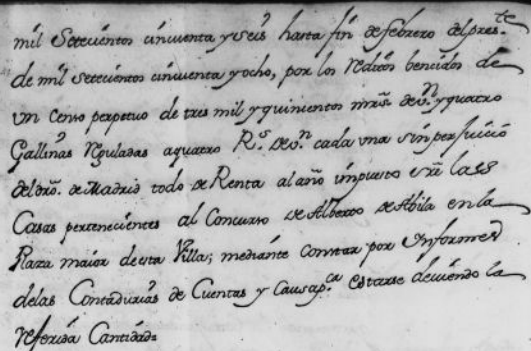 mil Setecientos cinquenta y seis hasta fin de febrero del pres.te
de mil setecientos cinquenta y ocho, por los reditos bencidos de
un Censo perpetuo de tres mil y quinientos mrs. de v.n y quatro
Gallinas reguladas a quatro R.s de v.n cada una sin perjuicio
del dro. de Madrid todo de Renta al año impuesto sre las
Casas perteneciẽtes al Concurso de Alberto de Abila en la
Plaza maior de esta Villa; mediante constar por Informes
de las Contadurias de Cuentas y Causap.ca estarse deviendo la
referida Cantidad=